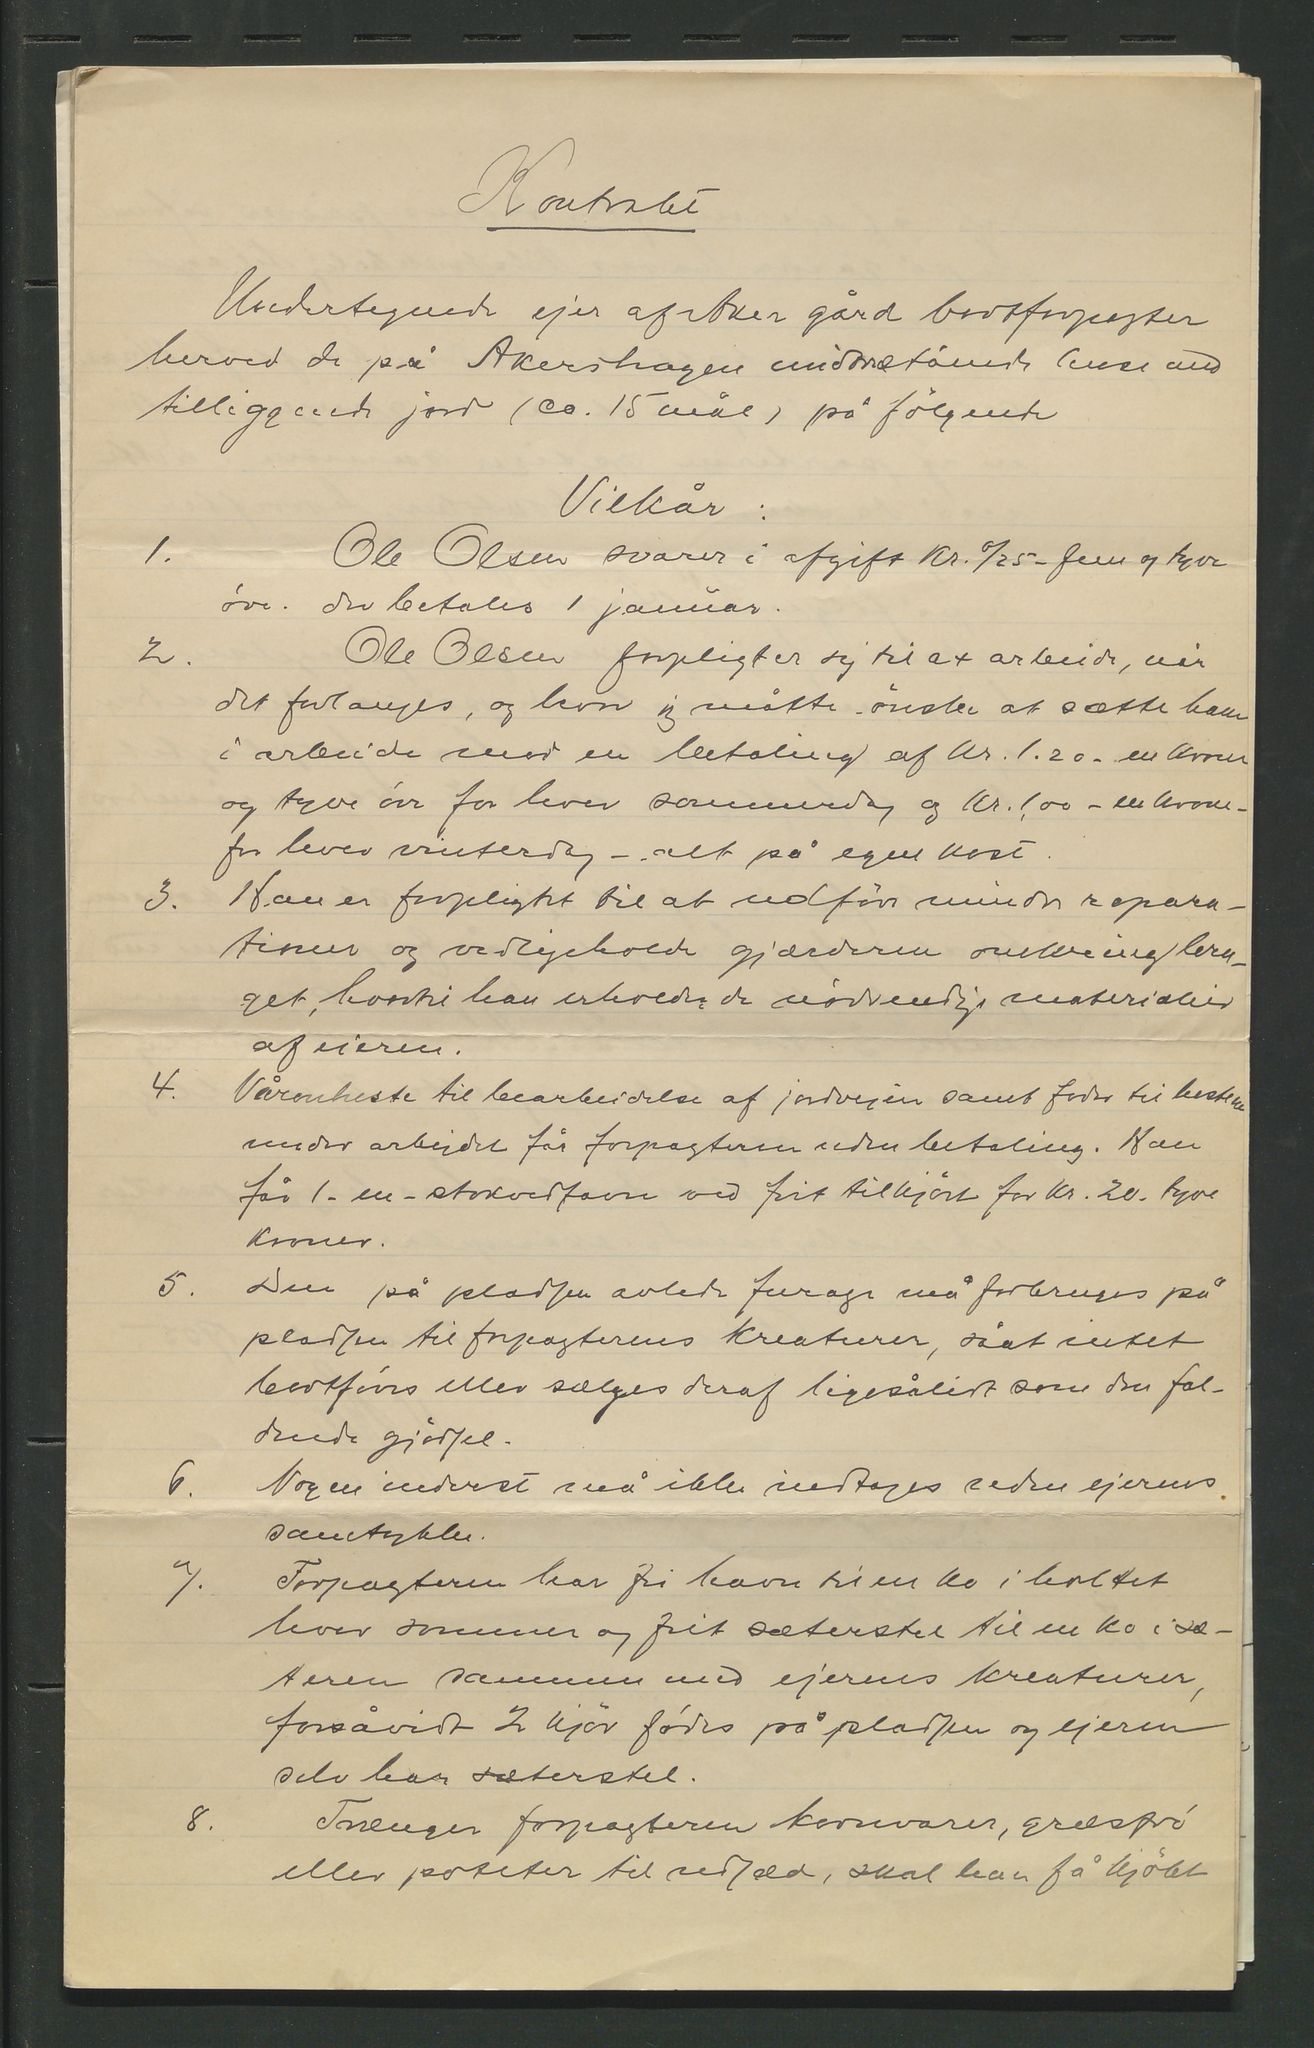 Kontrakt
Undertegnede ejer af Aker gård bortforpagter
herved de på Akershagen inidestående huse med
tilliggende jord (ca. 15 mål) på følgende
Vilkår:
1. Ole Olsen svarer i afgift Kr. 0/25 - fem og tyve
öre. der betales 1 januar.
2. Ole Olsen forpligter sig til at arbeide, når
det forlanges, og hvor jeg måtte önske at sætte ham
i arbeide mod en betaling af Kr. 1.20 - en krone
og tyve öre for hver sommerdag og Kr. 1,00 - en krone -
for hver vinterdag - alt på egen kost.
3. Han er forpligtet til at udföre mindre repara-
tioner og vedligeholde gjærderne omkring bru-
get, hvortil han erholder de nödvendige materialier
af eieren.
4. Våronheste til bearbeidelse af jordvejen samt foder til hestene
under arbejdet får forpagteren uden betaling. Han
får 1 - en - stokvedfavn ved frit tilkjört for Kr. 20 - tyve
kroner.
5. Den på pladsen avlede furage må forbruges på
pladsen til forpagterens kreaturer, såat intet
bortföres eller sælges deraf ligesålidt som den fal-
dende gjödsel.
6. Nogen inderst må ikke indtages uden ejerens
samtykke.
7. Forpagteren har fri havn til en ko i holtet
hver sommer og frit sæterstel til en ko i sæ-
teren sammen med ejerens kreaturer,
forsåvidt 2 kjör födes på pladsen og ejeren
selv har sæterstel.
8. Trænger forpagteren kornvarer, græsfrö
eller poteter til udsæd, skal han få kjöbt